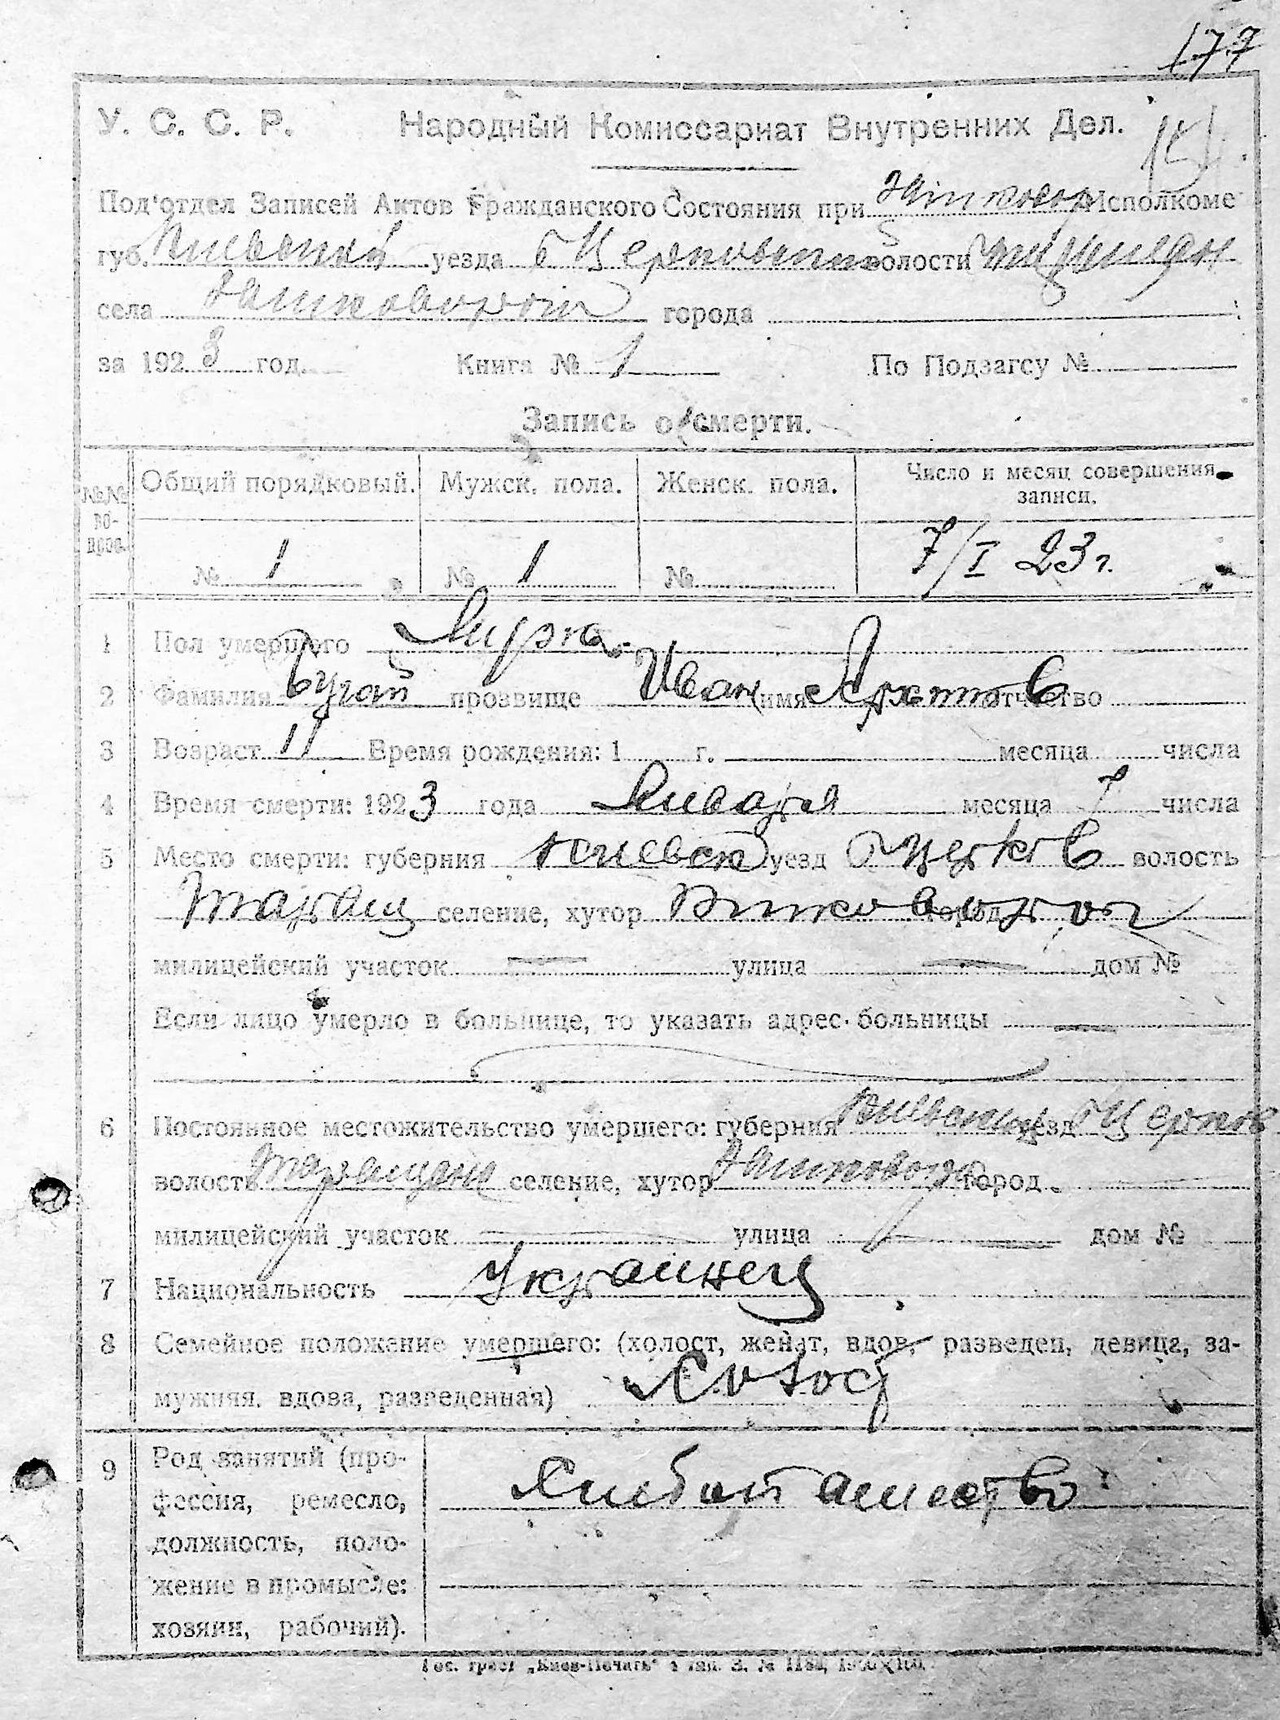 177
У. С. С. Р. Народный Комиссариат Внутренних Дел.
Под'отдел Записей Актов Гражданского Состояния при Исполкоме
губ. Киевской уезда б Церковского волости
села города
за 1923 год. Книга № 1 По Подзагсу №
Запись о смерти.
№№ во-прос. Общий порядковый. Мужск. пола. Женск. пола. Число и месяц совершения записи.
№ 1 № 1 № 7/I 23 г.
1 Пол умершего
2 Фамилия Бугай прозвище Иван имя отчество
3 Возраст 11 Время рождения: 1 г. месяца числа
4 Время смерти: 1923 года Января месяца 7 числа
5 Место смерти: губерния Киевск уезд б Церков волость
Таращ селение, хутор город
милицейский участок — улица — дом №
Если лицо умерло в больнице, то указать адрес больницы —
6 Постоянное местожительство умершего: губерния уезд б Церков
волость селение, хутор город
милицейский участок — улица — дом №
7 Национальность Украинец
8 Семейное положение умершего: (холост, женат, вдов, разведен, девица, за-
мужняя. вдова, разведенная) Холост
9 Род занятий (про-
фессия, ремесло,
должность, поло-
жение в промысле:
хозяин, рабочий).
Гос. трест „Киев-Печать"